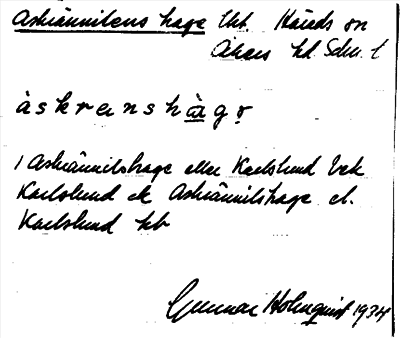 Askrännilens hage lht. Häreds sn
Åkers hd. Södm. l.
à s k r e n s h à g ọ
1 Askrännilshage eller Karlslund bek
Karlslund ek Askrännilshage el.
Karlslund kb
Gunnar Holmquist 1934